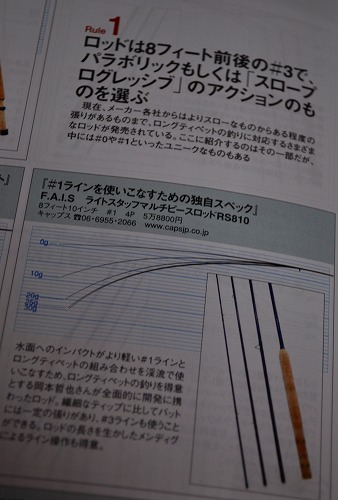 Rule 1
ロッドは8フィート前後の#3で、
パラボリックもしくは「スロープ
ログレッシブ」のアクションのも
のを選ぶ
現在、メーカー各社からはよりスローなものからある程度の
張りがあるものまで、ロングティペットの釣りに対応するさまざま
なロッドが発売されている。ここに紹介するのはその一部だが、
中には#0や#1といったユニークなものもある
『#1ラインを使いこなすための独自スペック』
F.A.I.S ライトスタッフマルチピースロッドRS810
8フィート10インチ #1 4P 5万8800円
キャップス ☎06・6955・2066 www.capsjp.co.jp
0g
10g
20g
25g
30g
水面へのインパクトがより軽い#1ラインと
ロングティペットの組み合わせを渓流で使
いこなすため、ロングティペットの釣りを得意
とする岡本哲也さんが全面的に開発に携
わったロッド。繊細なティップに比してバット
には一定の張りがあり、#3ラインも使うこと
ができる。ロッドの長さを生かしたメンディグ
によるライン操作も得意。